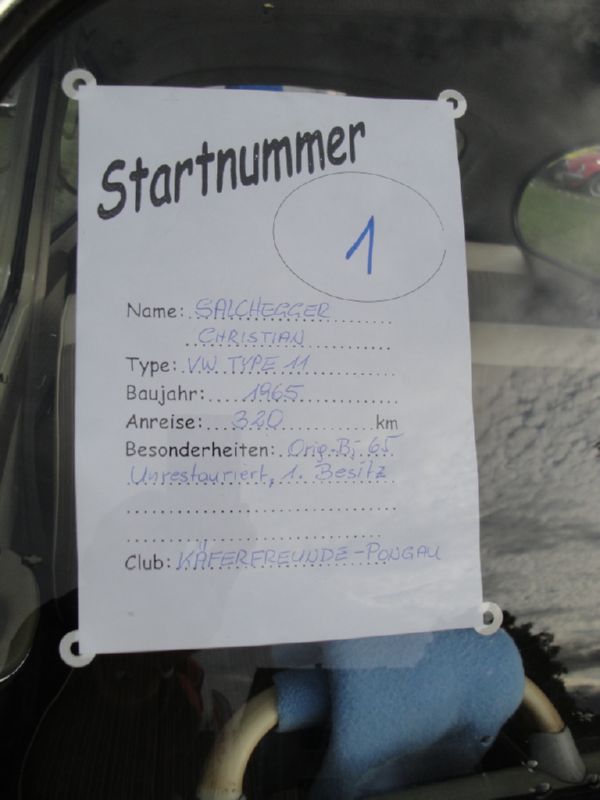 Startnummer
1
Name: SALCHEGGER
CHRISTIAN
Type: VW TYPE 11
Baujahr: 1965
Anreise: 320 km
Besonderheiten: Orig.-Bj 65
Unrestauriert, 1. Besitz
Club: KÄFERFREUNDE-PONGAU